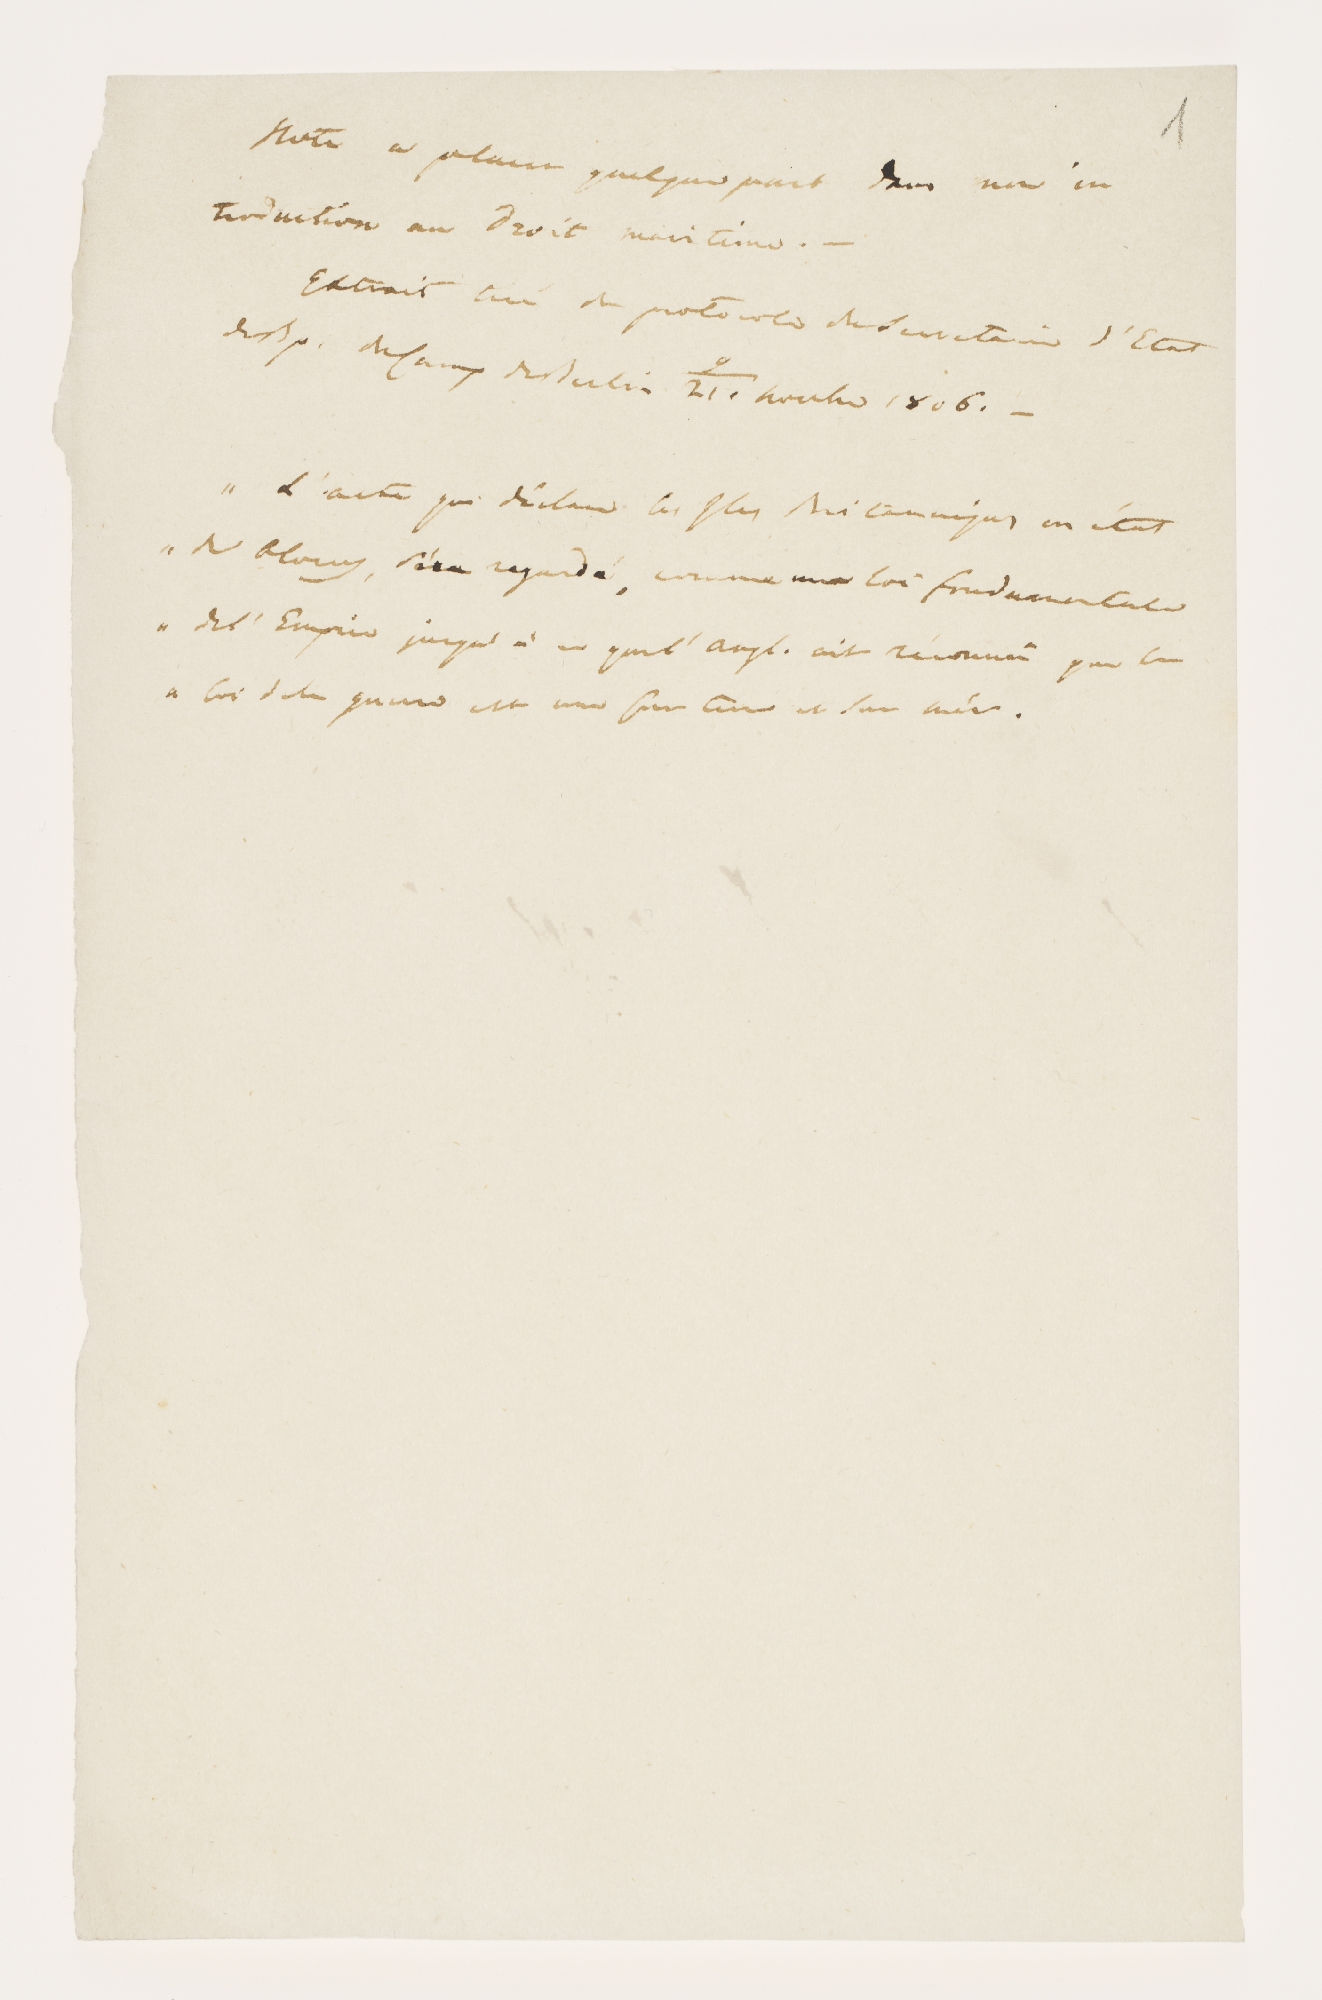 1
Note a placer quelque part dans mon in
troduction au Droit maritime. —
Extrait tiré du protocole du Secretaire d'Etat
du Camp de Berlin 21. novbre 1806. —
" L'acte qui déclare les Iles Britanniques en état
" de Blocus, séra regardé, comme une loi fondamentale
" de l'Empire jusqu'à ce que l'angl. ait réconnu que la
" loi de la guerre est une sur terre et sur mér.